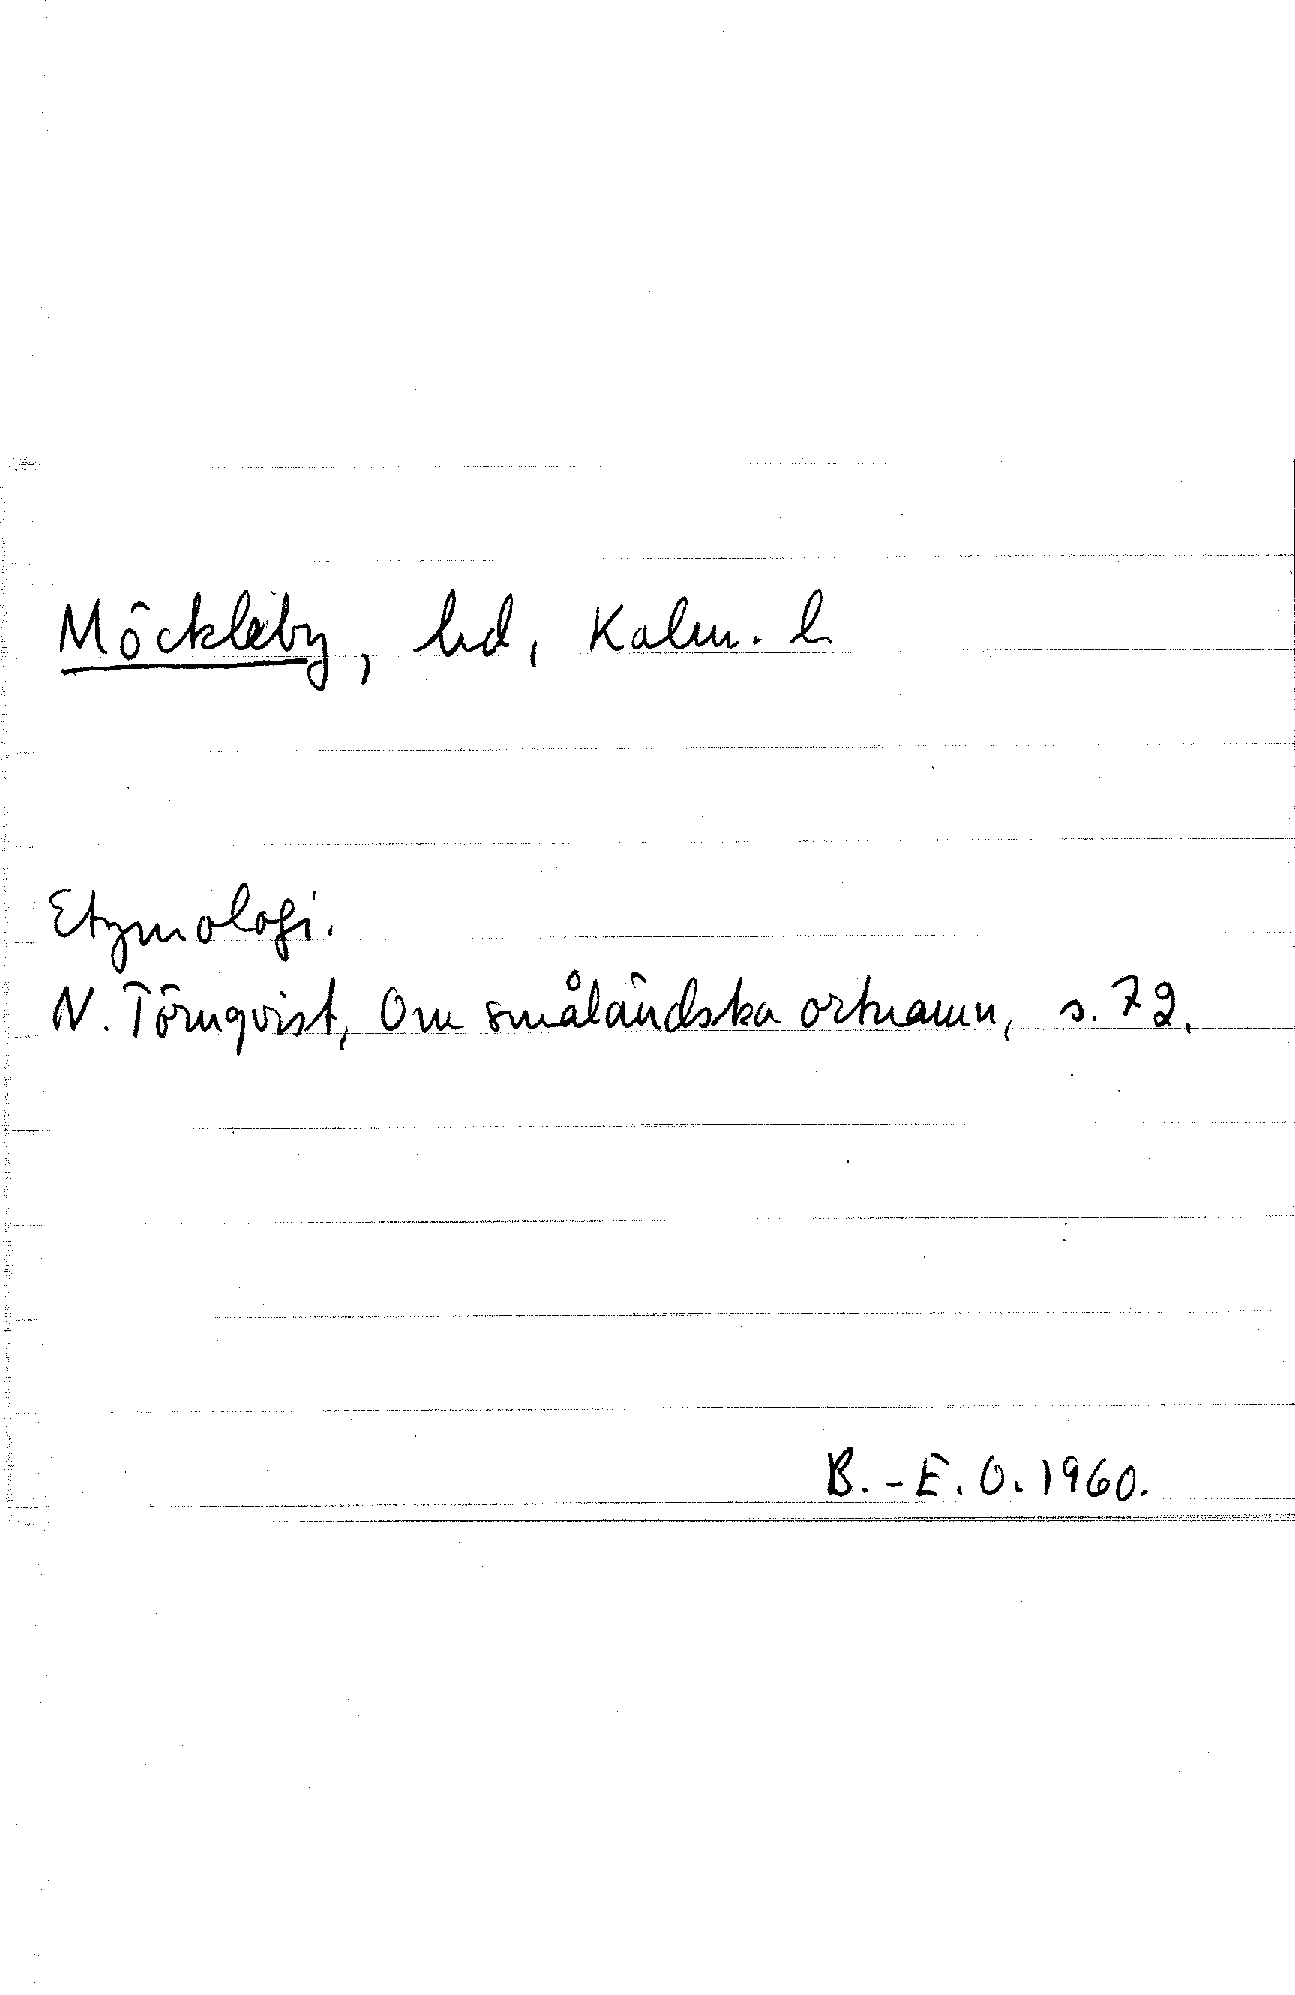 Möckleby, hd, Kalm. l.
Etymologi.
N. Törnqvist, Om småländska ortnamn, s. 72.
B.-E. O. 1960.